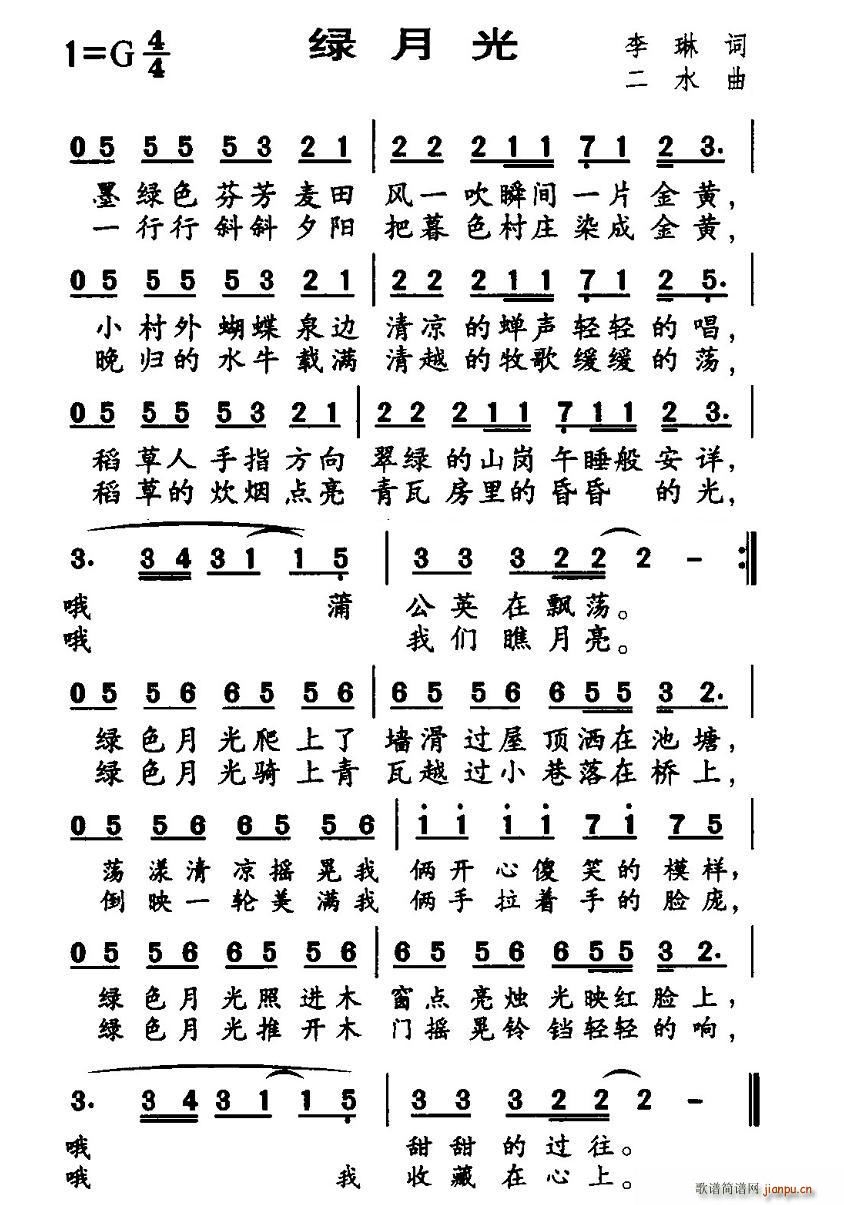 1=G 4/4 绿月光 李琳 词
二水 曲
0 5 5 5 5 3 2 1 | 2 2 2 1 1 7 1 2 3. |
墨绿色芬芳麦田 风一吹瞬间一片金黄,
一行行斜斜夕阳 把暮色村庄染成金黄,
0 5 5 5 5 3 2 1 | 2 2 2 1 1 7 1 2 5. |
小村外蝴蝶泉边 清凉的蝉声轻轻的唱,
晚归的水牛载满 清越的牧歌缓缓的荡,
0 5 5 5 5 3 2 1 | 2 2 2 1 1 7 1 1 2 3. |
稻草人手指方向 翠绿的山岗午睡般安详,
稻草的炊烟点亮 青瓦房里的昏昏 的光,
3. 3 4 3 1 1 5 | 3 3 3 2 2 2 - :‖
哦 蒲 公英在飘荡。
哦 我们瞧月亮。
0 5 5 6 6 5 5 6 | 6 5 5 6 6 5 5 3 2. |
绿色月光爬上了 墙滑过屋顶洒在池塘,
绿色月光骑上青 瓦越过小巷落在桥上,
0 5 5 6 6 5 5 6 | i i i i 7 i 7 5 |
荡漾清凉摇晃我 俩开心傻笑的模样,
倒映一轮美满我 俩手拉着手的脸庞,
0 5 5 6 6 5 5 6 | 6 5 5 6 6 5 5 3 2. |
绿色月光照进木 窗点亮烛光映红脸上,
绿色月光推开木 门摇晃铃铛轻轻的响,
3. 3 4 3 1 1 5 | 3 3 3 2 2 2 - ‖
哦 甜甜的过往。
哦 我 收藏在心上。
歌谱简谱网
jianpu.cn